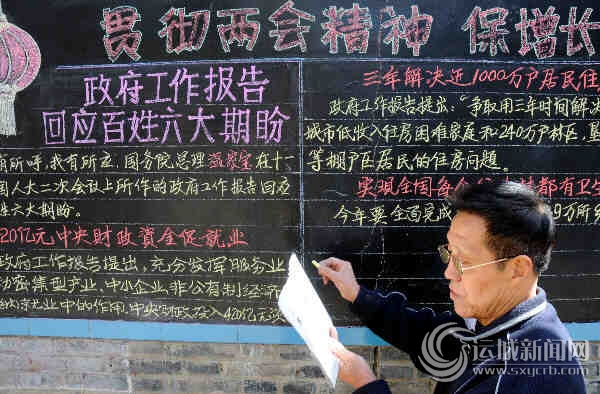 贯彻两会精神 保增长
政府工作报告
回应百姓六大期盼
有所呼,我有所应,国务院总理温家宝在十一
国人大二次会议上所作的政府工作报告回应
姓六大期盼。
420亿元中央财政资金促就业
政府工作报告提出,充分发挥服务业
动密集型产业、中小企业、非公有制经济
业中的作用,中央财政投入420亿元
三年解决近1000万户居民住
政府工作报告提出:"争取用三年时间解决
城市低收入住房困难家庭和240万户林区、垦
等棚户区居民的住房问题。
实现全国每个 都有卫生
今年要全面完成 9万所乡
运城新闻网
www.sxycrb.com